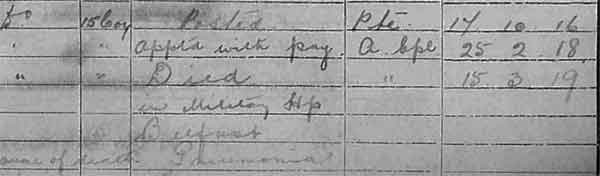 Do 15 Coy Posted Pte. 17 10 16
" " appt'd with pay. A Cpl 25 2 18
" " Died " 15 3 19
in Military Hp
Belfast
cause of death Pneumonia